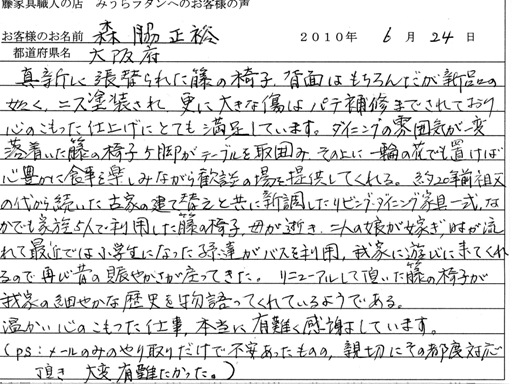 藤家具職人の店 みうらラタンへのお客様の声
お客様のお名前 森脇正裕 2010年 6月 24日
都道府県名 大阪府
真新しく張替られた籐の椅子、背面はもちろんだが新品の
如く、ニス塗装され、更に大きな傷はパテ補修までされており
心のこもった仕上げにとても満足しています。ダイニングの雰囲気が一変
落着いた籐の椅子ヶ脚がテーブルを取囲み、その上に一輪の花でも置けば
心豊かに食事を楽しみながら歓談の場を提供してくれる。約20年前祖父
の代から続いた古家の建て替えと共に新調したリビング・ダイニング家具一式、な
かでも家族5人で利用した籐の椅子、母が逝き、二人の娘が嫁ぎ、時が流
れて最近では小学生になった孫達がバスを利用、我家に遊びに来てくれ
るので再び昔の賑やかさが戻ってきた。リニューアルして頂いた籐の椅子が
我家の細やかな歴史を物語ってくれているようである。
温かい心のこもった仕事、本当に有難く感謝しています。
(ps:メールのみのやり取りだけで不安あったものの、親切にその都度対応
頂き 大変有難たかった。)